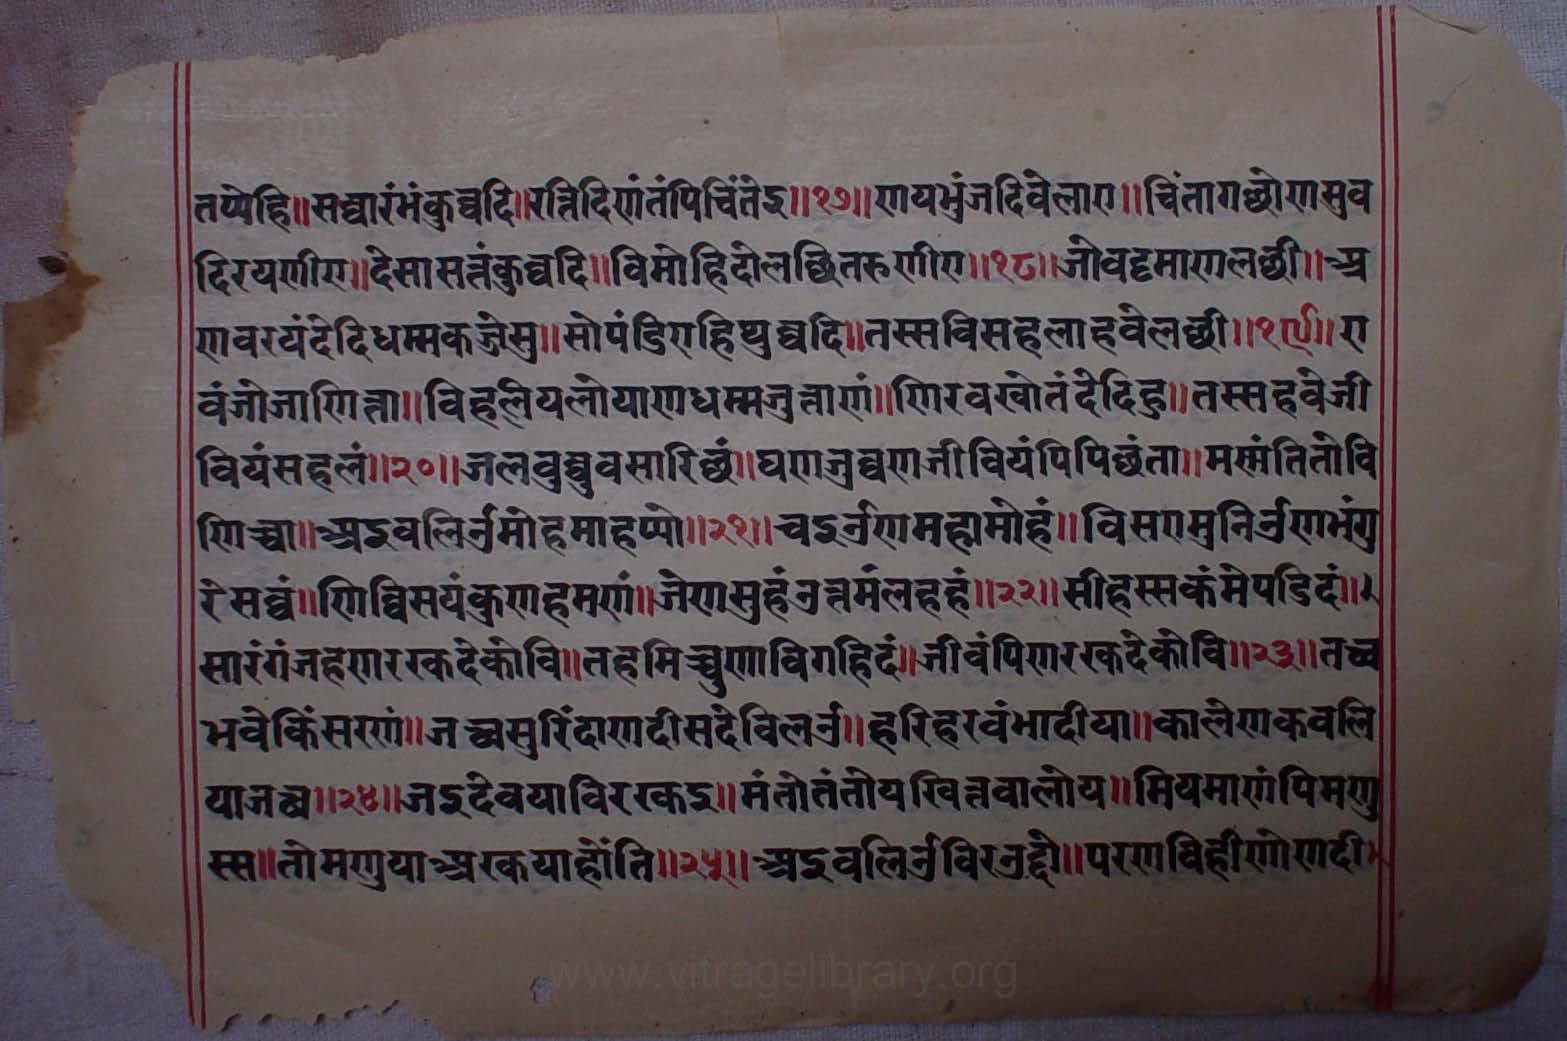 तप्पेहि॥सव्वारंभंकुव्वदि॥रत्तिदिणंतंपिचिंतेइ॥१७॥णयभुंजदिवेलाए॥चिंतागच्छोणसुव
दिरयणीए॥देसासत्तंकुव्वदि॥विमोहिदोलच्छितरुणीए॥१८॥जोवट्टमाणलच्छी॥अ
णवरयंदेदिधम्मकज्जेसु॥सोपंडिएहिथुव्वदि॥तस्सविसहलाहवेलच्छी॥१९॥ए
वंजोजाणित्ता॥विहलियलोयाणधम्मजुत्ताणं॥णिरवखोतंदेदिहु॥तस्सहवेजी
वियंसहलं॥२०॥जलवुव्वुवसारिच्छं॥घणजुव्वणजीवियंपिपिच्छंता॥मस्मंतितोवि
णिच्चा॥अइवलिर्उमोहमाहप्पो॥२१॥चइर्उणमहामोहं॥विसएमुनिर्उणभंगु
रेसव्वं॥णिव्विसयंकुणहमणं॥जेणसुहंउत्तमंलहहं॥२२॥सीहस्सकंमेपडिदं॥
सारंगंजहणररकदेकोवि॥तहमिच्चुणाविगहिदं॥जीवंपिणररकदेकोवि॥२३॥तच्च
भवेकिंसरणं॥जच्चसुरिंदाणदीसदेविलर्उ॥हरिहरवंभादीया॥कालेणकवलि
याजच्च॥२४॥जइदेवयाविररकइ॥मंतोतंतोयखित्तवालोय॥मियमाणंपिमणु
स्स॥तोमणुयाअरकयाहोंति॥२५॥अइवलिर्उविरउद्दो॥परणविहीणोणदी
www.vitragelibrary.org